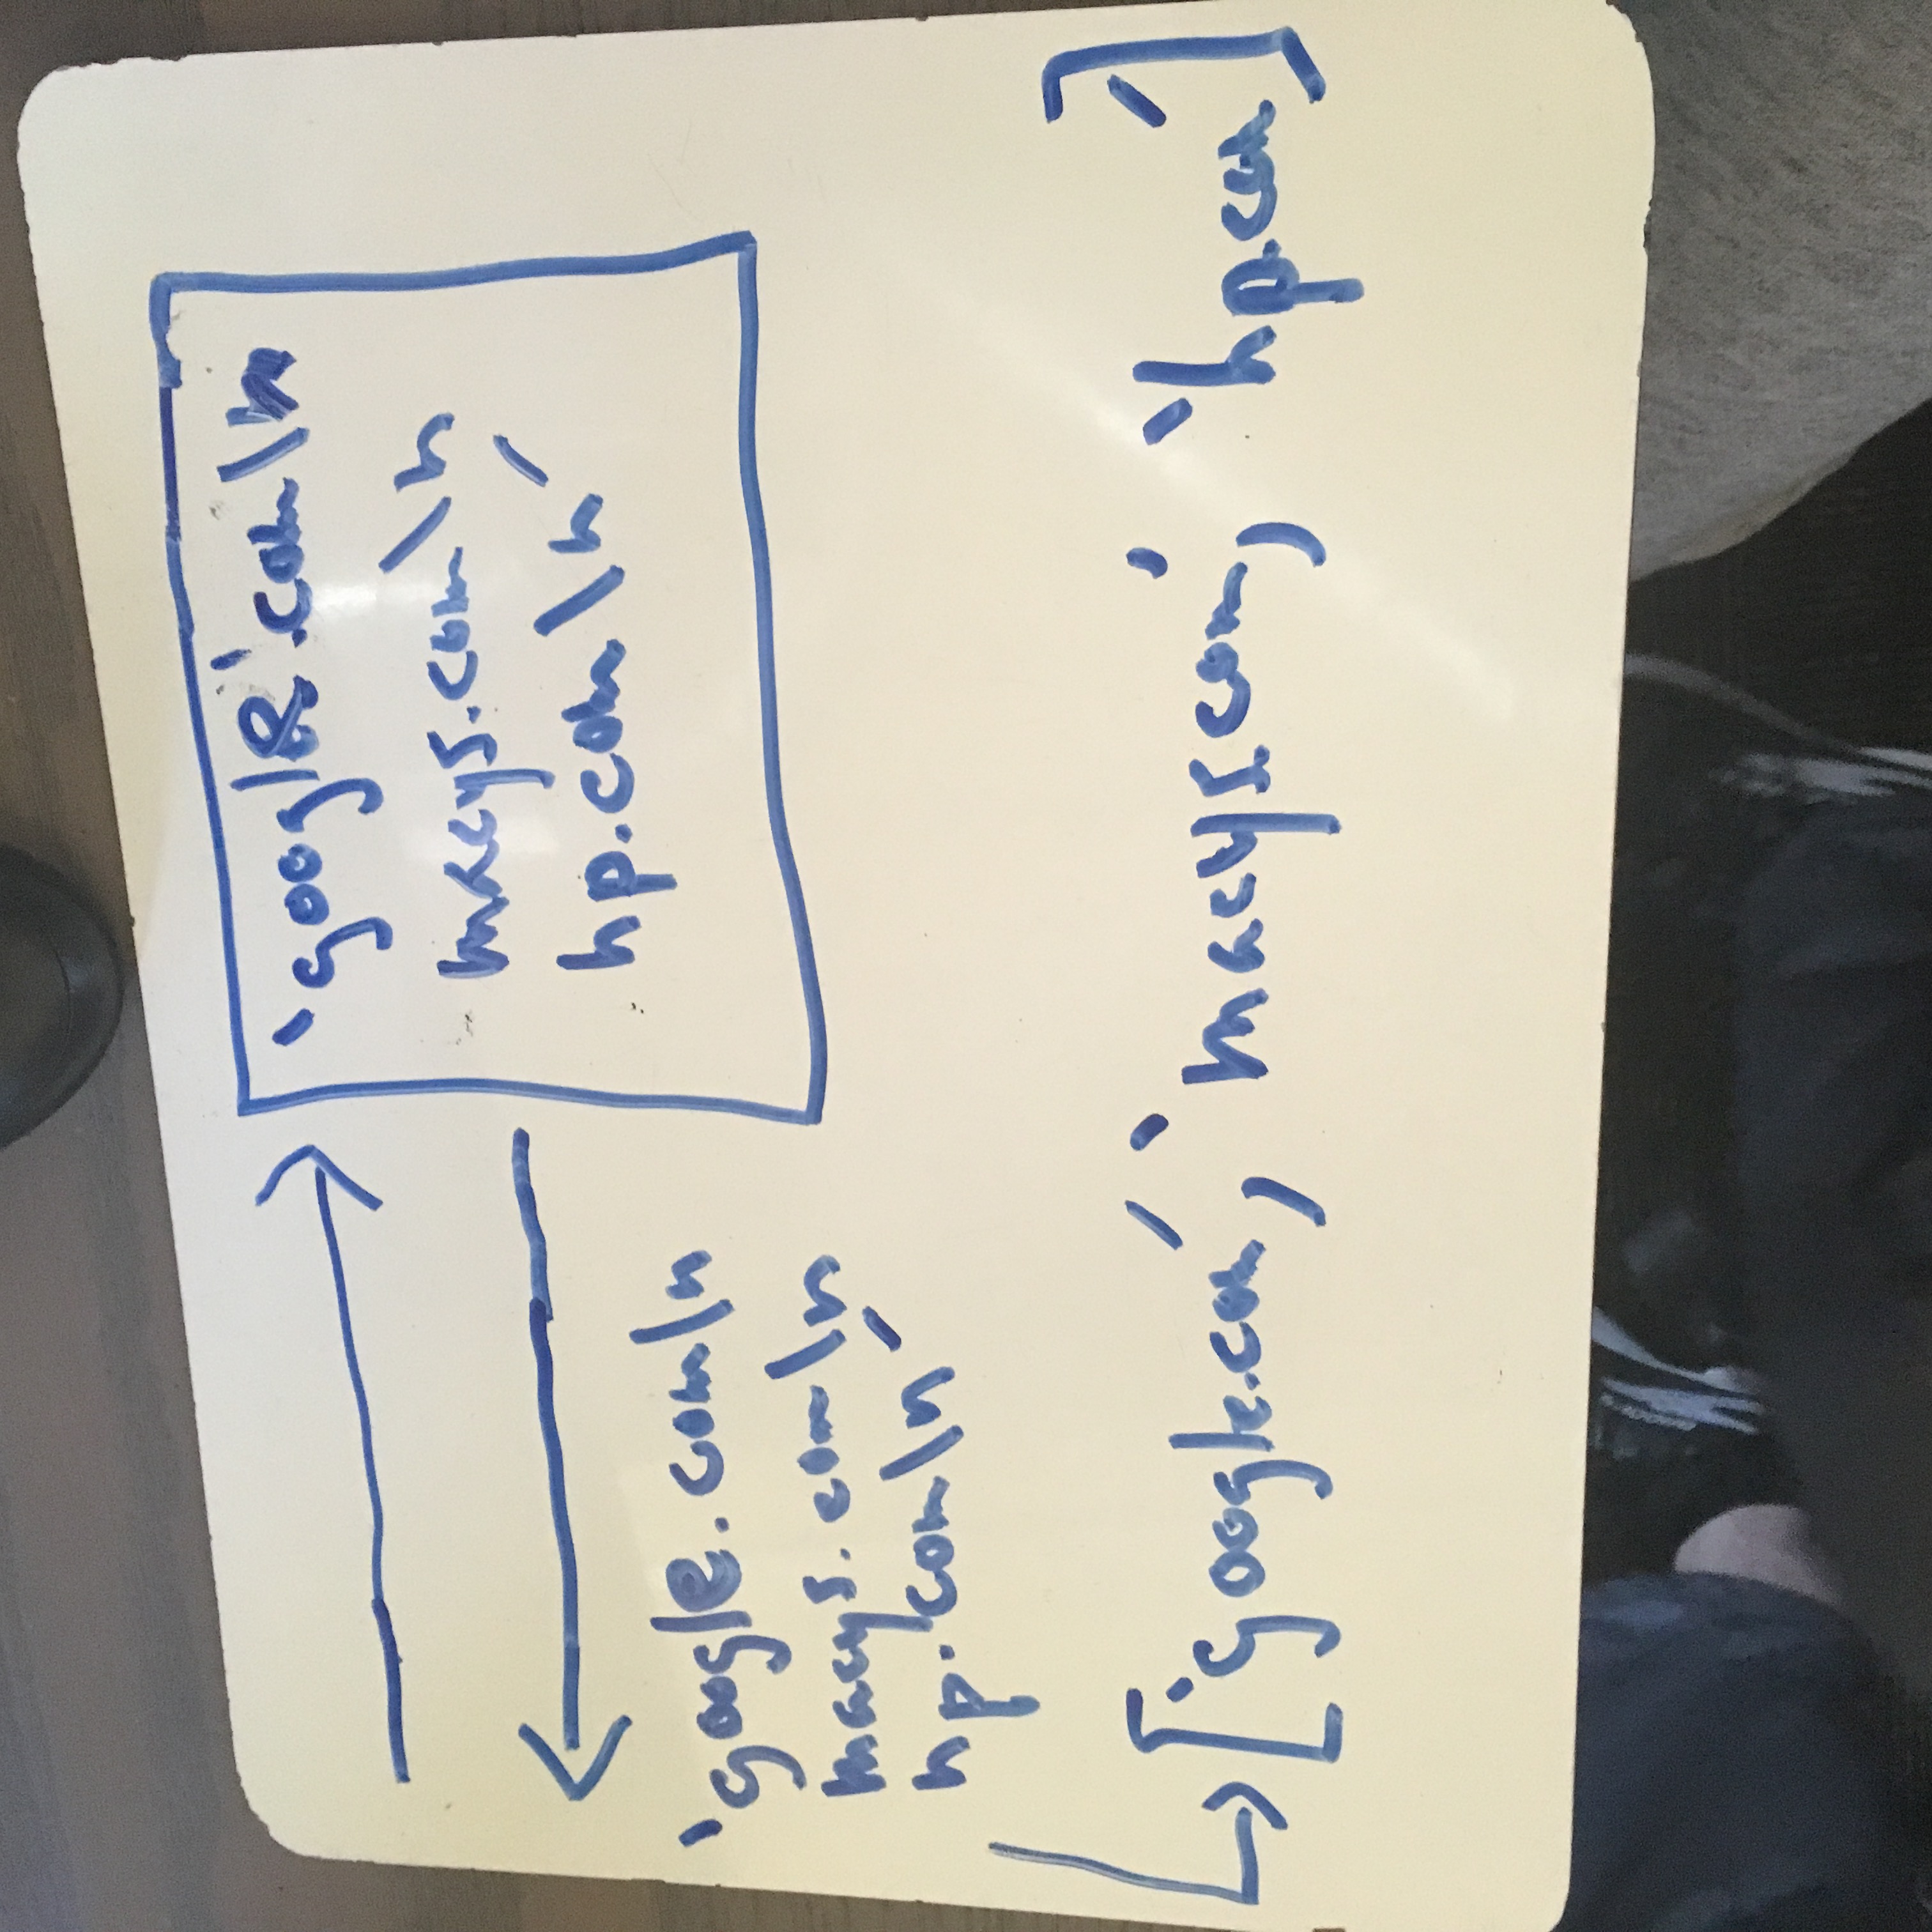 'google'.com\n
macys.com\n
hp.com\n'
'google.com\n
macys.com\n
hp.com\n'
['google.com', 'macys.com', 'hp.com']